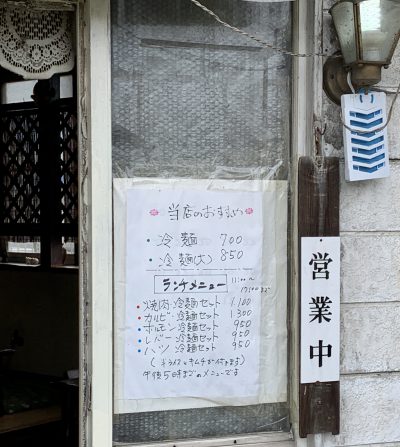 当店のおすすめ
・冷麺 700
・冷麺(大) 850
ランチメニュー 11:00〜
17:00まで
・焼肉・冷麺セット 1,100
・カルビ・冷麺セット 1,300
・ホルモン・冷麺セット 950
・レバー・冷麺セット 950
・ハツ・冷麺セット 950
(ライスとキムチが付きます)
午後5時までのメニューです
営業中